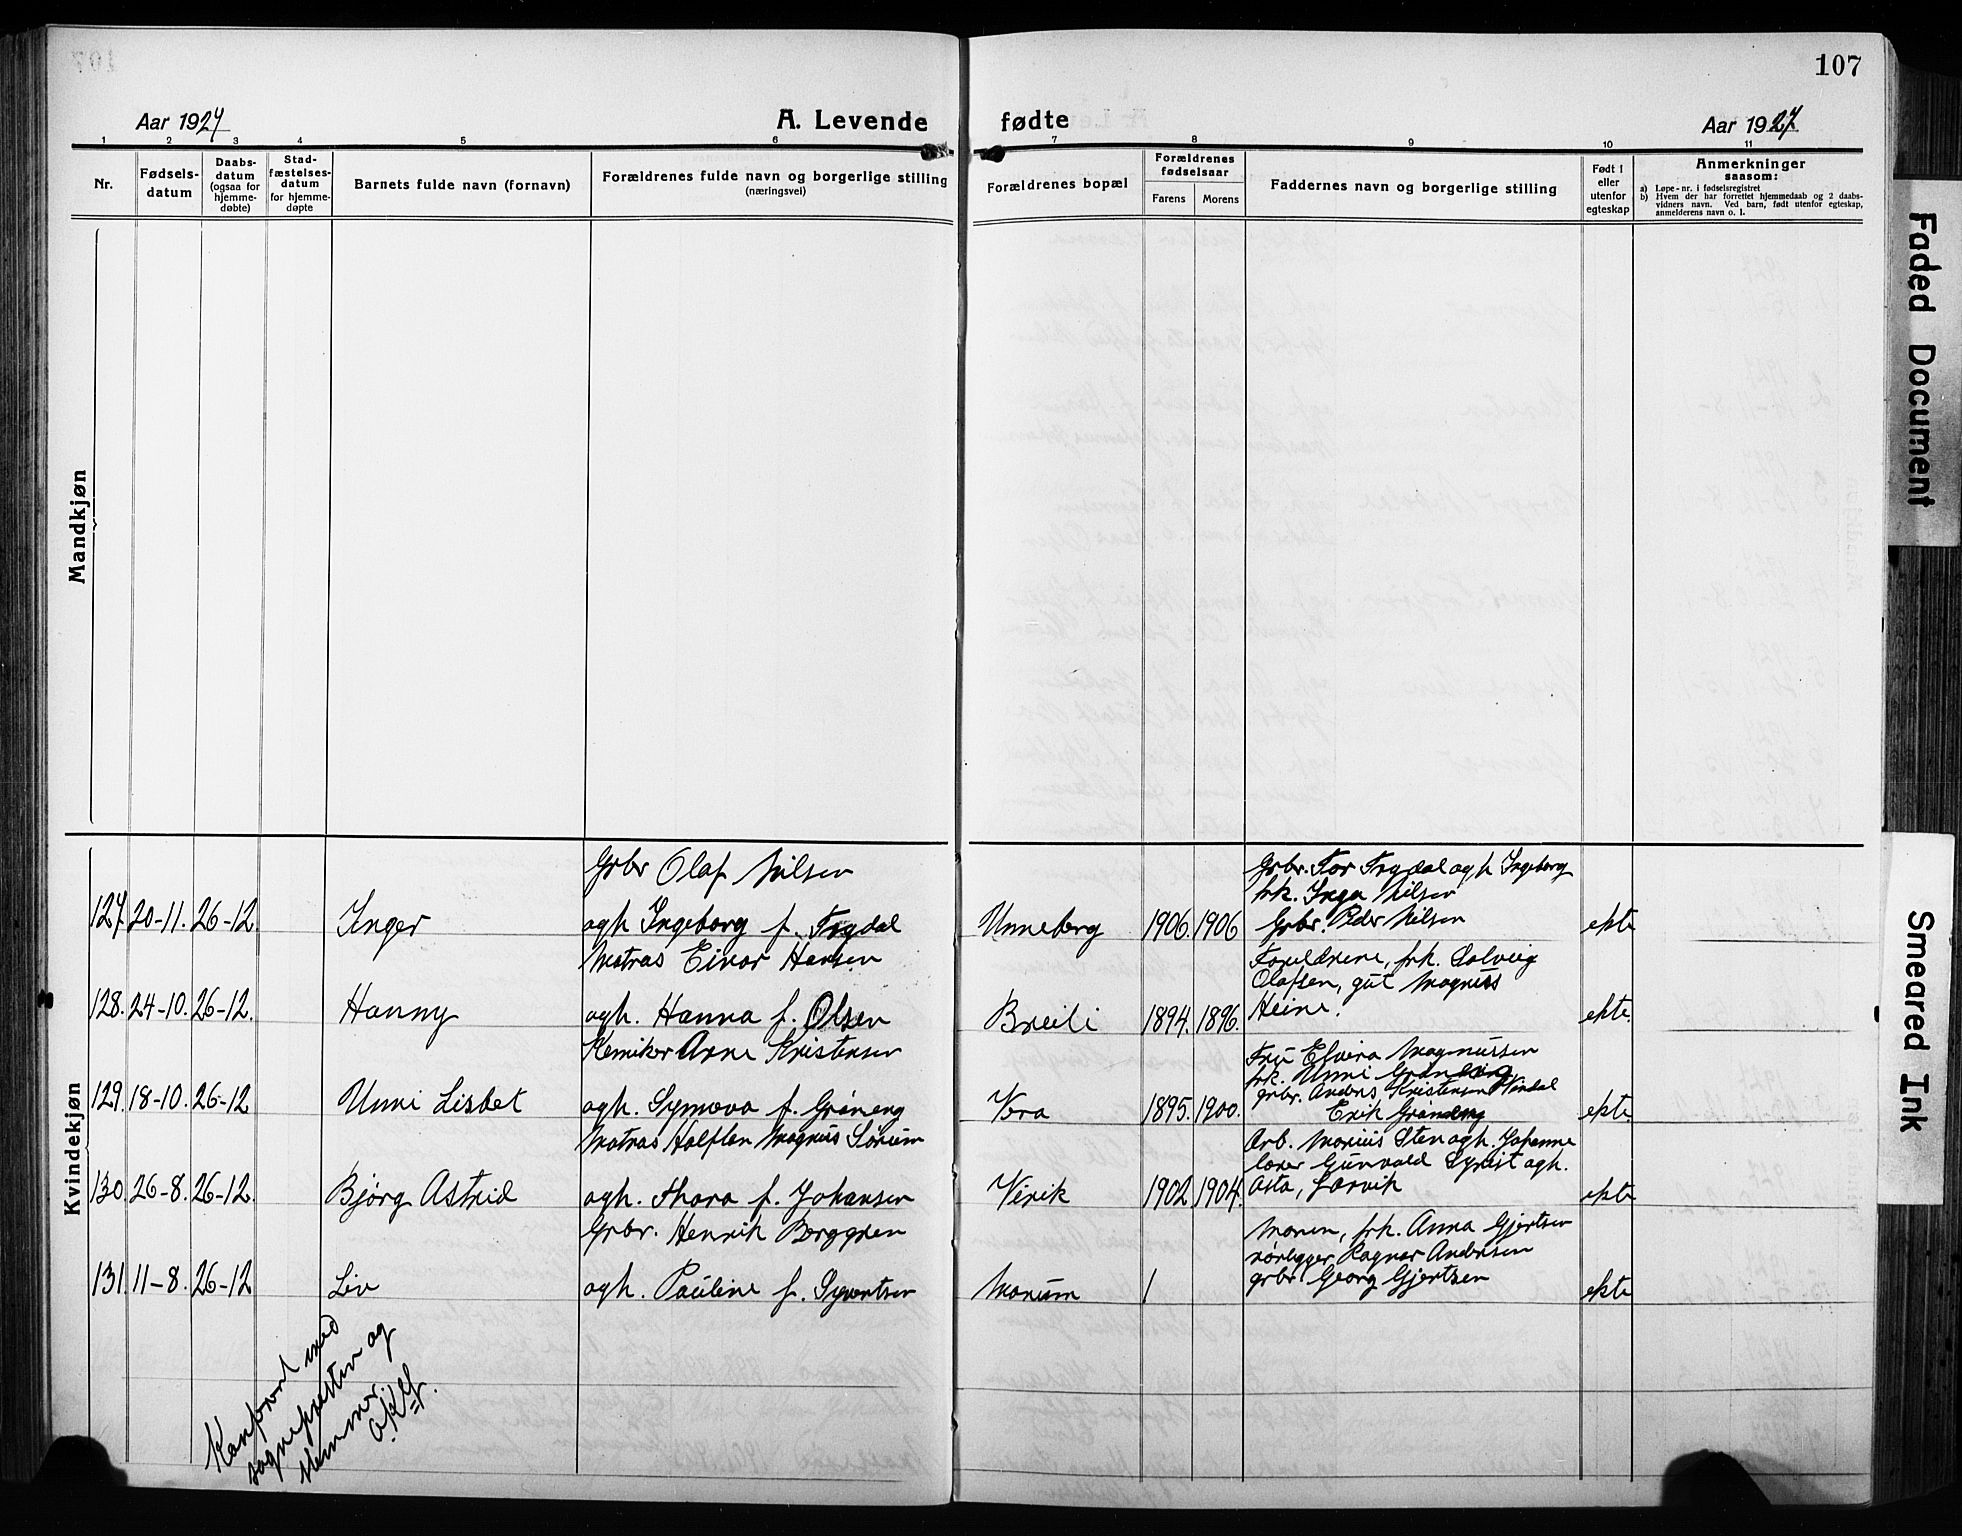 107
Aar 1927
A. Levende fødte
Aar 1927
1 2 3 4 5 6 7 8 9 10 11
Nr.
Fødsels-
datum
Daabs-
datum
(ogsaa for
hjemme-
døbte)
Stad-
fæstelses-
datum
for hjemme-
døpte
Barnets fulde navn (fornavn)
Forældrenes fulde navn og borgerlige stilling
(næringsvei)
Forældrenes bopæl
Forældrenes
fødselsaar
Farens Morens
Faddernes navn og borgerlige stilling
Født i
eller
utenfor
egteskap
Anmerkninger
saasom:
a) Løpe-nr. i fødselsregistret
b) Hvem der har forrettet hjemmedaab og 2 daabs-
vidners navn. Ved barn, født utenfor egteskap,
anmelderens navn o. l.
Mandkjøn
Kvindekjøn
Grbr Olaf Nilsen
Grbr. Tor Trydal agh Ingeborg
frk. Inga Nilsen
127. 20-11. 26-12. Inger agh Ingeborg f. Trydal Unneberg 1906. 1906 Grbr. Peder Nilsen ekte
Matros Einar Hansen
Foreldrene, frk. Solveig
Olafsen, gut Magnus
128. 24-10. 26-12. Hanny agh. Hanna f. Olsen Breili 1894. 1896. Heine. ekte.
Kemiker Arne Kristensen
Fru Elvira Magnussen
frk. Unni Grøneng
grbr. Anders Kristensen Vindal
129. 18-10. 26-12 Unni Lisbet agh. Synnøva f. Grøneng Vera 1895. 1900. Erik Grøneng ekte.
Matros Halfdan Magnus Sørum
Arb. Marius Sten agh. Johanne
lærer Gunvald Syrist agh.
130. 26-8. 26-12. Bjørg Astrid agh. Thora f. Johansen Virik 1902. 1904. Asta, Larvik ekte
Grbr. Henrik Berggren
Moren, frk. Anna Gjertsen
rørlegger Ragnar Andersen
131. 11-8. 26-12 Liv agh. Pauline f. Syvertsen Marum / grbr. Georg Gjertsen ekte
Konfører med
sognepresten og